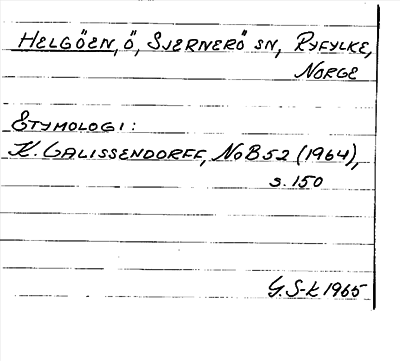 HELGÖEN, Ö, SJERNERÖ SN, RYFYLKE,
NORGE
ETYMOLOGI:
K. CALISSENDORFF, NoB 52 (1964),
s. 150
G. S-k 1965